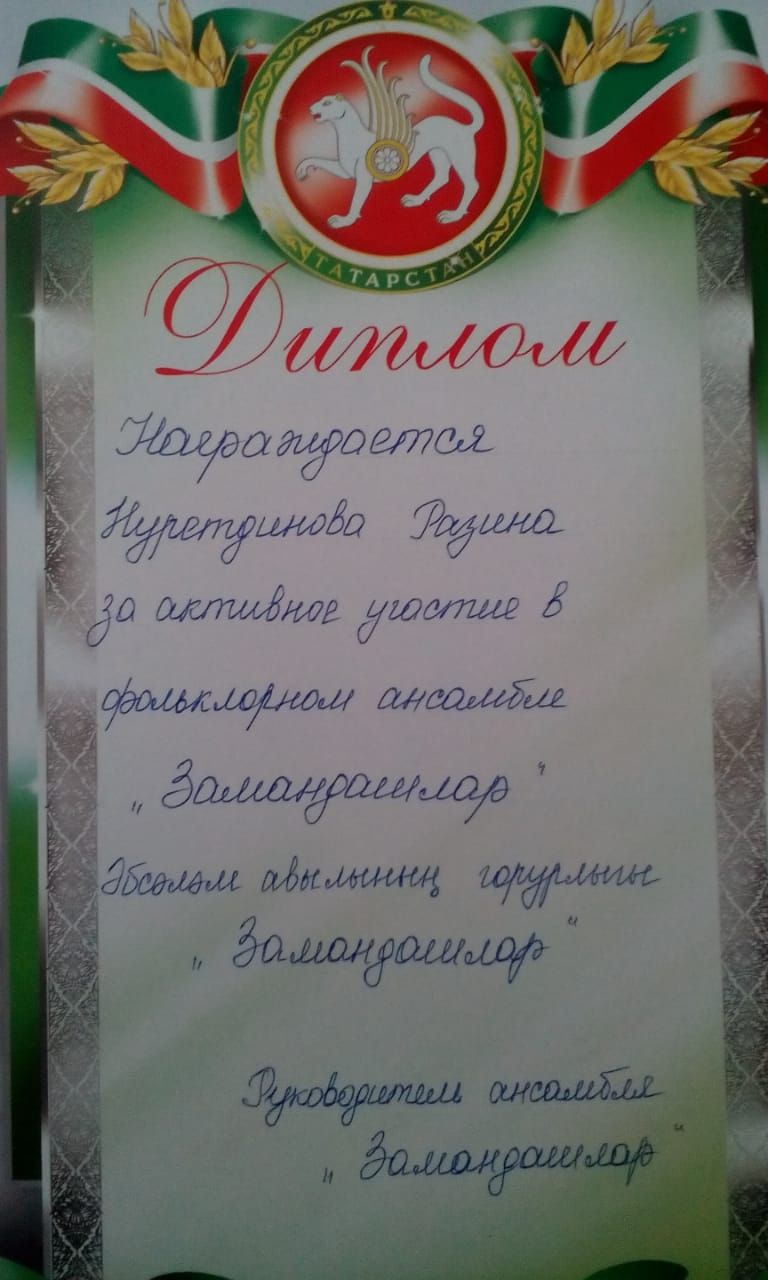 ТАТАРСТАН
Диплом
Награждается
Нуретдинова Разина
за активное участие в
фольклорном ансамбле
„Замандашлар"
Әбсәләм авылының горурлыгы
„Замандашлар"
Руководитель ансамбля
„Замандашлар"